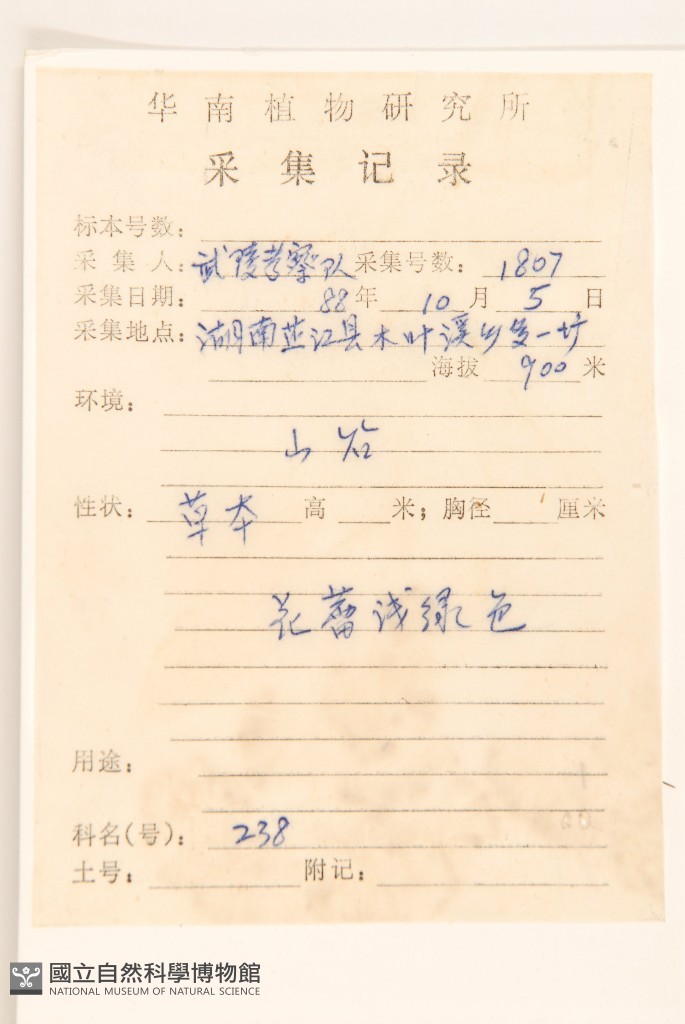 华南植物研究所
采集记录
标本号数：
采集人：武陵考察队 采集号数：1807
采集日期：88年10月5日
采集地点：湖南芷江县木叶溪乡
海拔900米
环境：
山谷
性状：草本 高 米；胸径 厘米
花蕾浅绿色
用途：
科名(号)：238
土号： 附记：
國立自然科學博物館
NATIONAL MUSEUM OF NATURAL SCIENCE